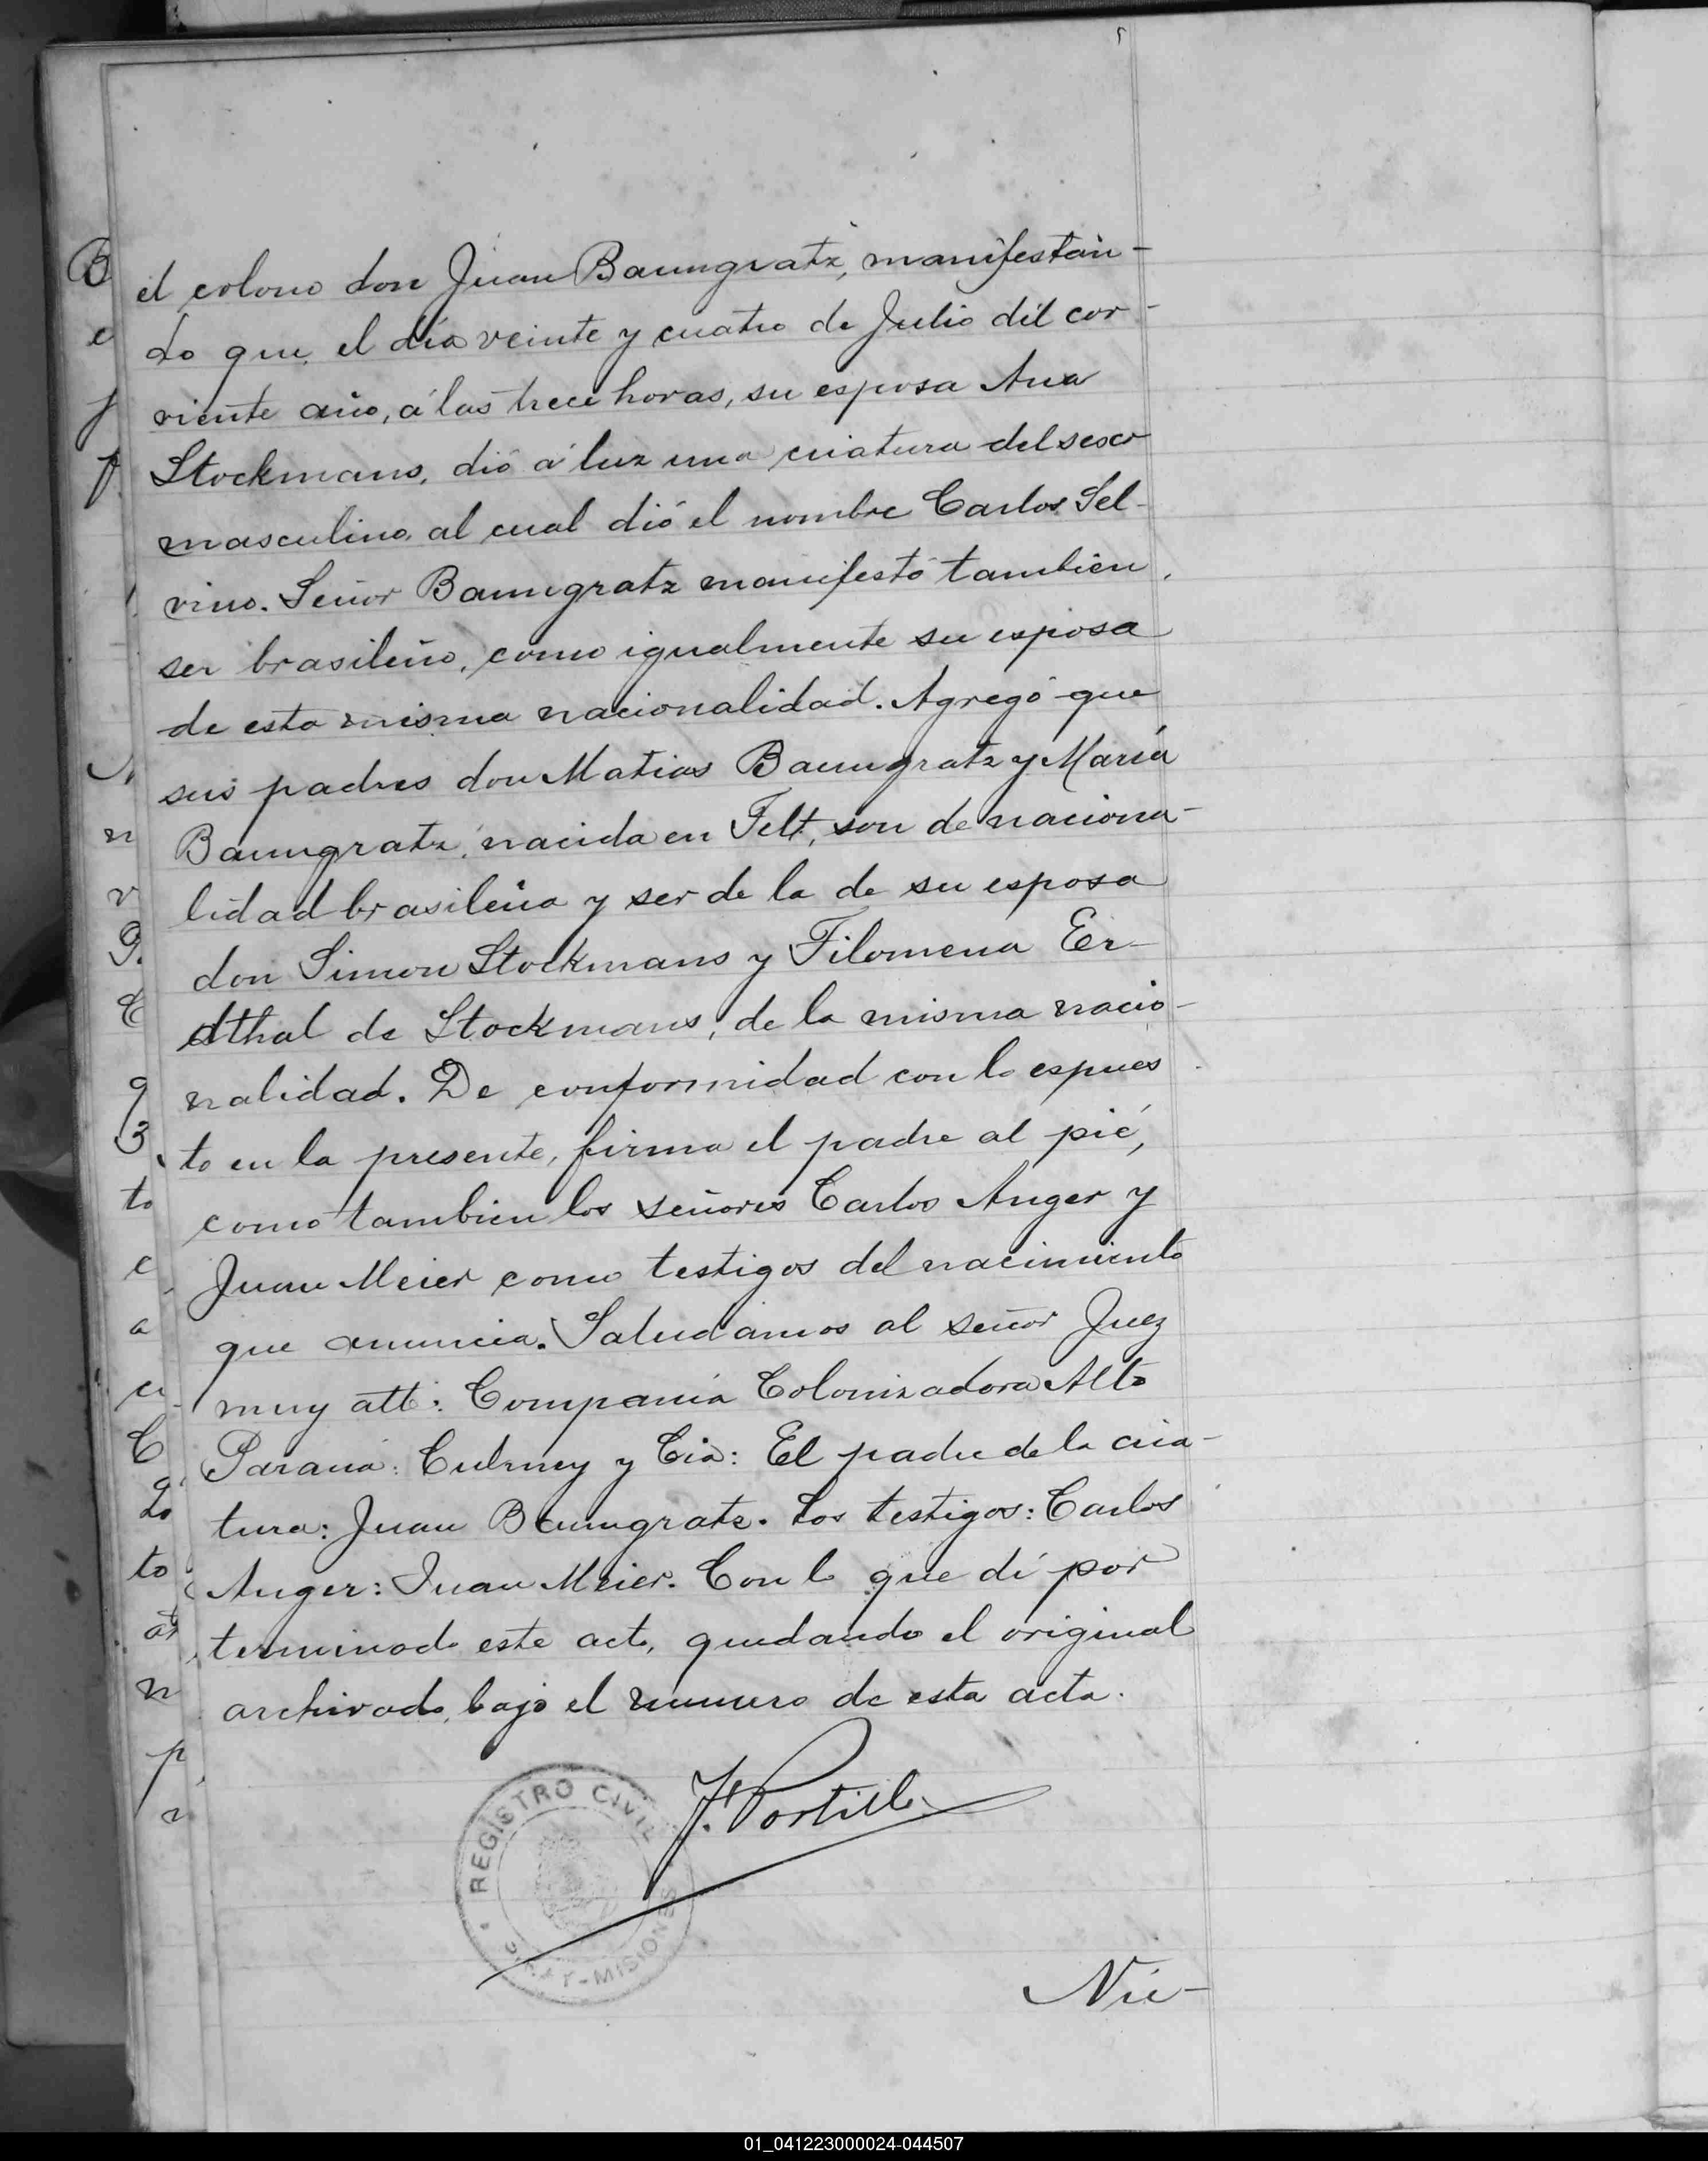 el colono don Juan Baumgratz, manifestan-
do que el día veinte y cuatro de Julio del cor-
riente año, á las trece horas, su esposa Ana
Stockmans, dió á luz una criatura del sexo
masculino, al cual dió el nombre Carlos Sel-
vino. Señor Baumgratz manifestó tambien
ser brasileño, como igualmente su esposa
de esta misma nacionalidad. Agregó que
sus padres don Matias Baumgratz y María
Baumgratz, nacida en Felt, son de naciona-
lidad brasileña y ser de la de su esposa
don Simon Stockmans y Filomena Er-
dthal de Stockmans, de la misma nacio-
nalidad. De conformidad con lo espues
to en la presente, firma el padre al pié,
como tambien los señores Carlos Auger y
Juan Meier como testigos del nacimiento
que anuncia. Saludamos al señor Juez
muy att: Compania Colonizadora Alto
Paraná: Culmey y Cia: El padre de la cria-
tura: Juan Baumgratz. Los testigos: Carlos
Auger: Juan Meier. Con lo que dí por
terminado este acto, quedando el original
archivado, bajo el numero de esta acta.
J. Portillo
REGISTRO CIVIL
MISIONES
Nú-
01_041223000024-044507